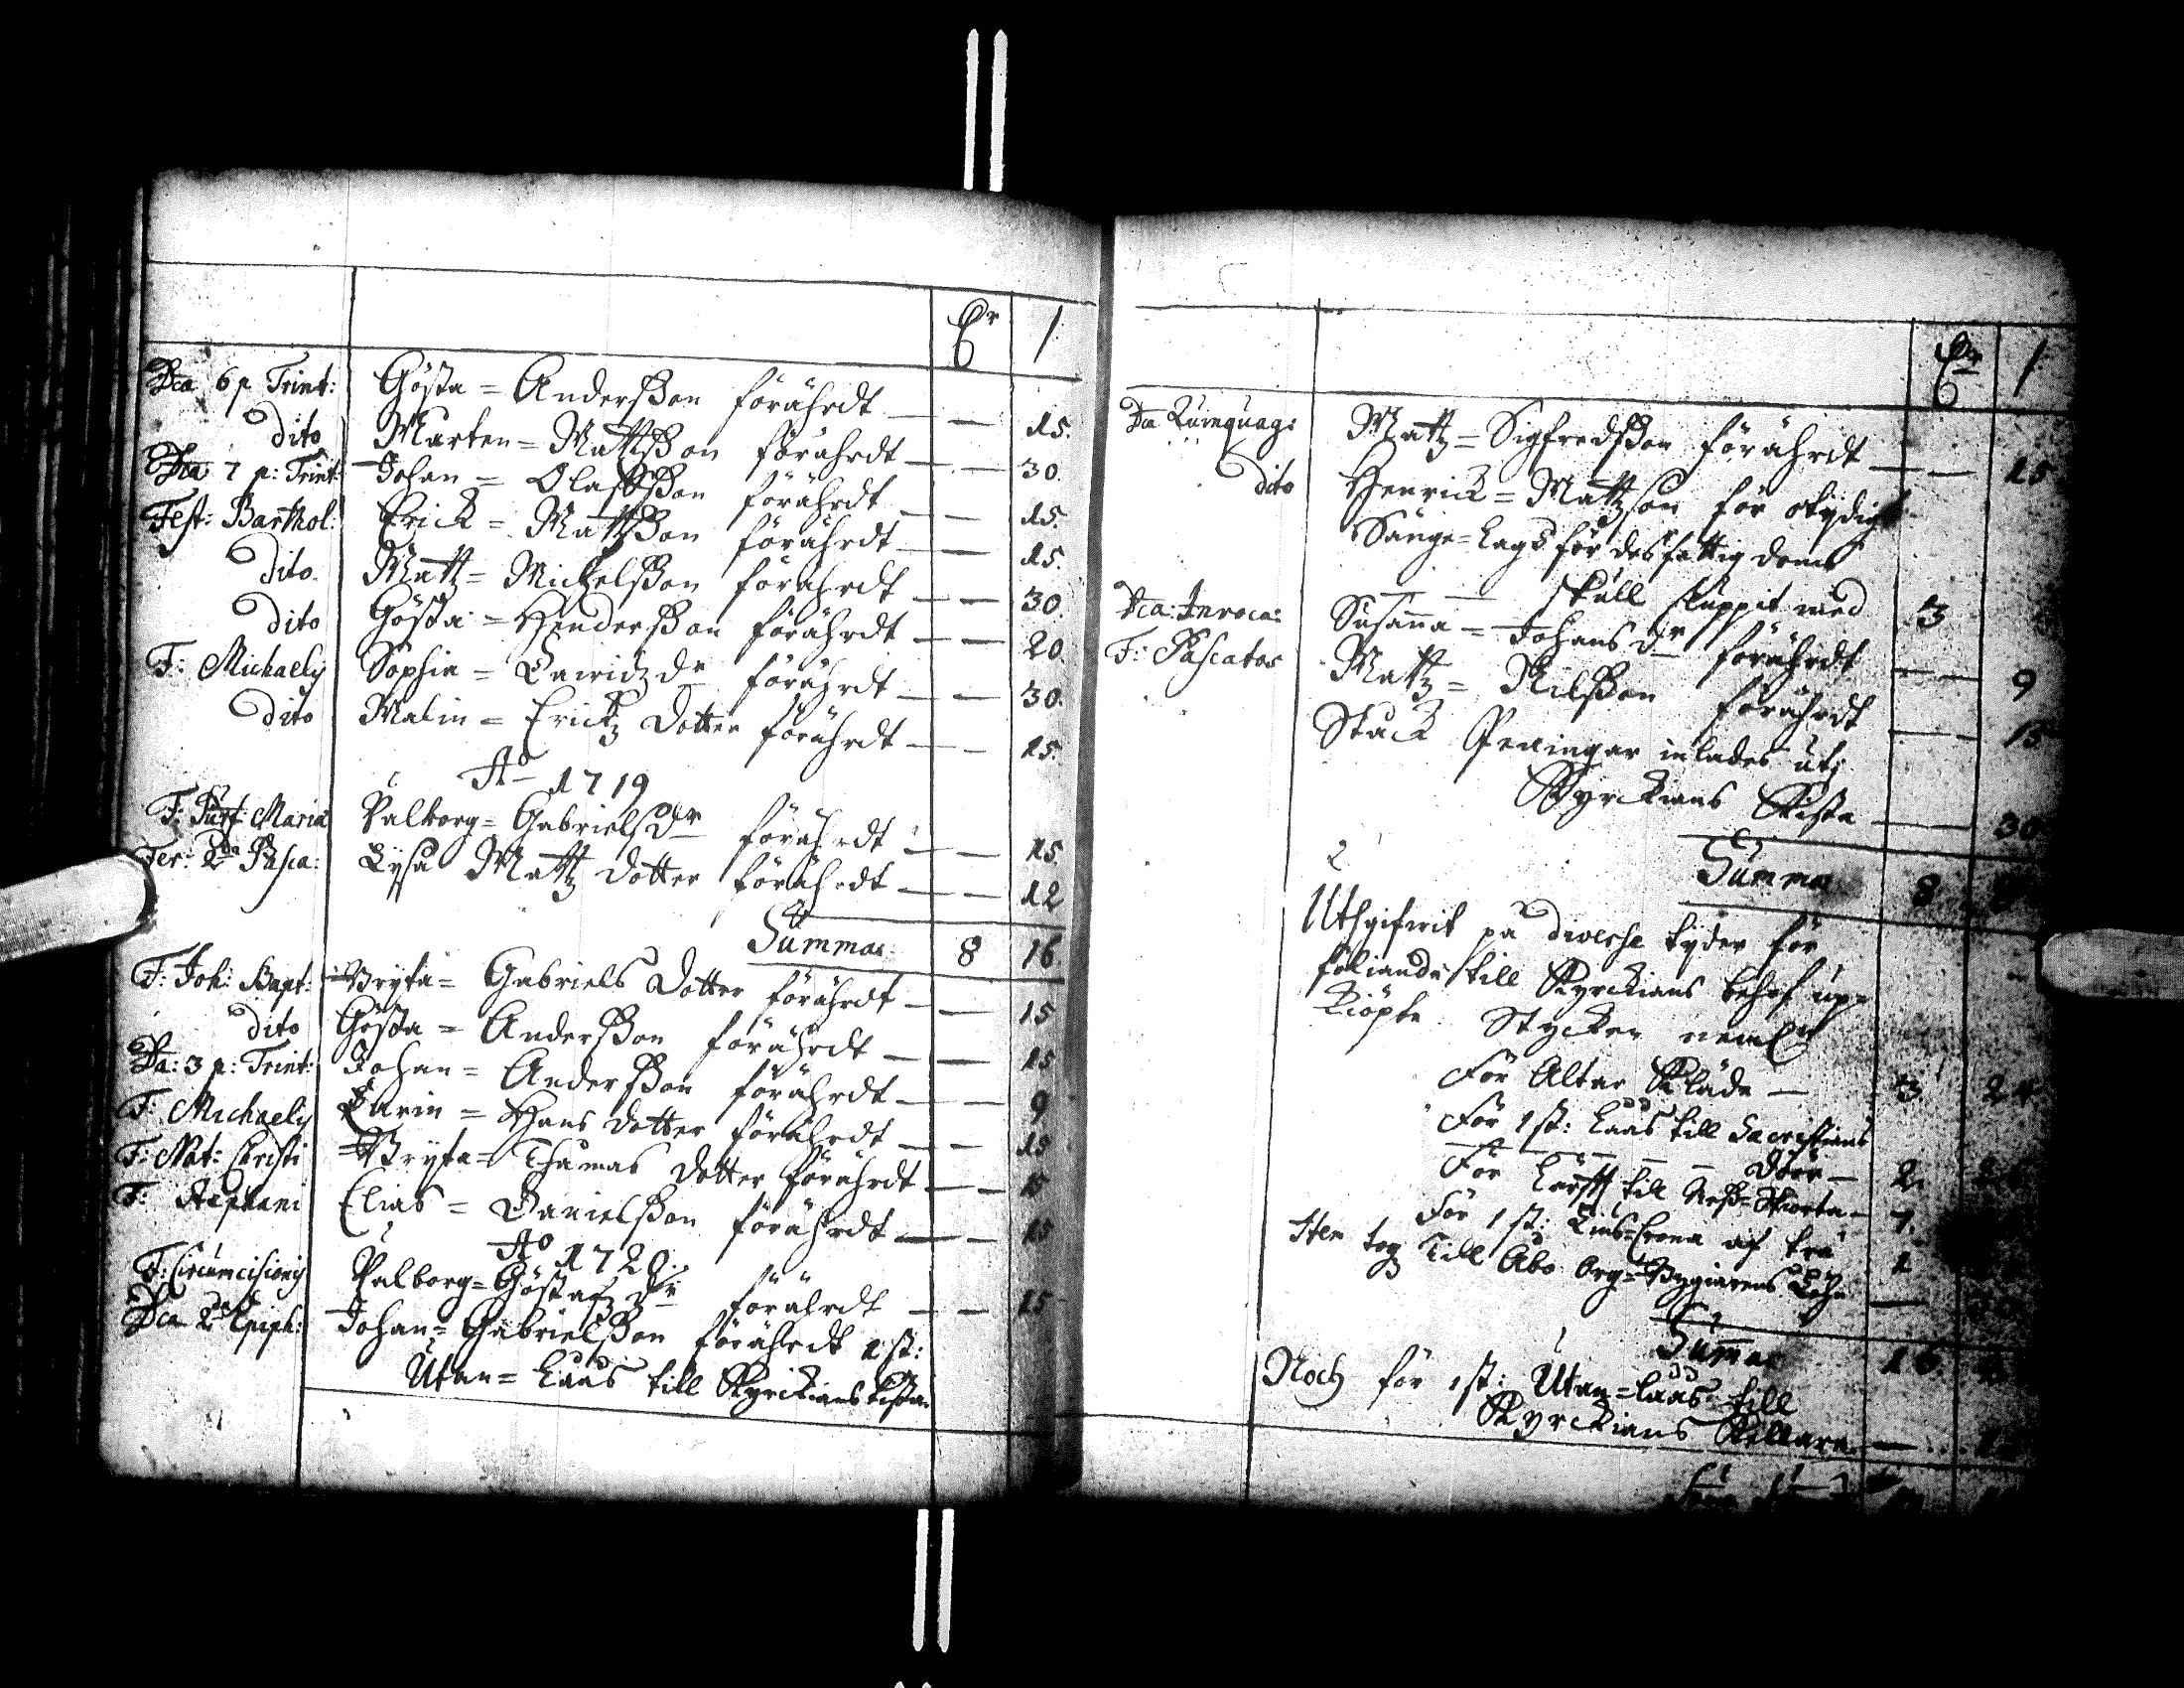 Dr 1
Dca 6 p. Trinit: Gösta = Anderßon förährdt — — 15.
Dito Marten = Mattßon förährdt — — 30.
Dca 7 p: Trinit: Johan = Olafßon förährdt — — 15.
Fest: Barthol: Erick = Mattzßon förährdt — — 15.
Dito. Mattz = Michelßon förährdt — — 30.
Dito Gösta = Henderßon förährdt — — 20.
F: Michaelis Sophia = Davidz dr förährdt — — 30.
Dito Malin = Erickz dotter förährdt — — 15.
Ao 1719
F: Purf: Maria Valborg = Gabriels Dr förährdt — — 15.
Fer: 2da Pasca: Lysa Mattz dotter förährdt — — 12
Summa: 8 16.
F: Joh: Bapt: Bryta = Gabriels dotter förährdt — — 15
Dito Gösta = Anderßon förährdt — — 15
Dca: 3 p: Trinit: Johan = Anderßon förährdt — — 9
F: Michaelis Karin = Hans dotter förährdt — — 15
F: Nat: Christi Bryta = Thamas dotter förährdt — — 15
F: Stephani Elias = Danielßon förährdt — — 15
Ao 1720.
F: Circumcisionis Valborg = Göstafz dr förährdt — — 15
Dca 2 Epiph: Johan = Gabrielßon förährdt 1 st:
Utan = Laas till Kyrckians kista.
Dr 1
Dca Quinquag: Mattz = Sigfredßon förährdt — — 15
Dito Henrick = Mattzson för otydigt
Sänge = Lagd för des fattigdoms
— — skull sluppit med 3
Dca: Invoca: Susanna = Johans dr förährdt — — 9
F: Pascatos Mattz = Nilßon förährdt — — 15
Stack Penningar inlades uti
Kyrckians Kista — 30
Summa 8
Uthgifwit på diverse tyder för
föliande till Kyrckians behof up=
kiöpte Stycker neml
För Altar Kläde — 3 24
För 1 st: Laas till Sacristians
— — — Dör — 2
För Lärfft till Meß = Skiorta — 7.
För 1 st: Lius = Crona af trä 1
Item tog till Åbo Org = Bygiarens Löhn —
Summa 16
Noch för 1 st: Utan = laas till
Kyrckians Kellare. —